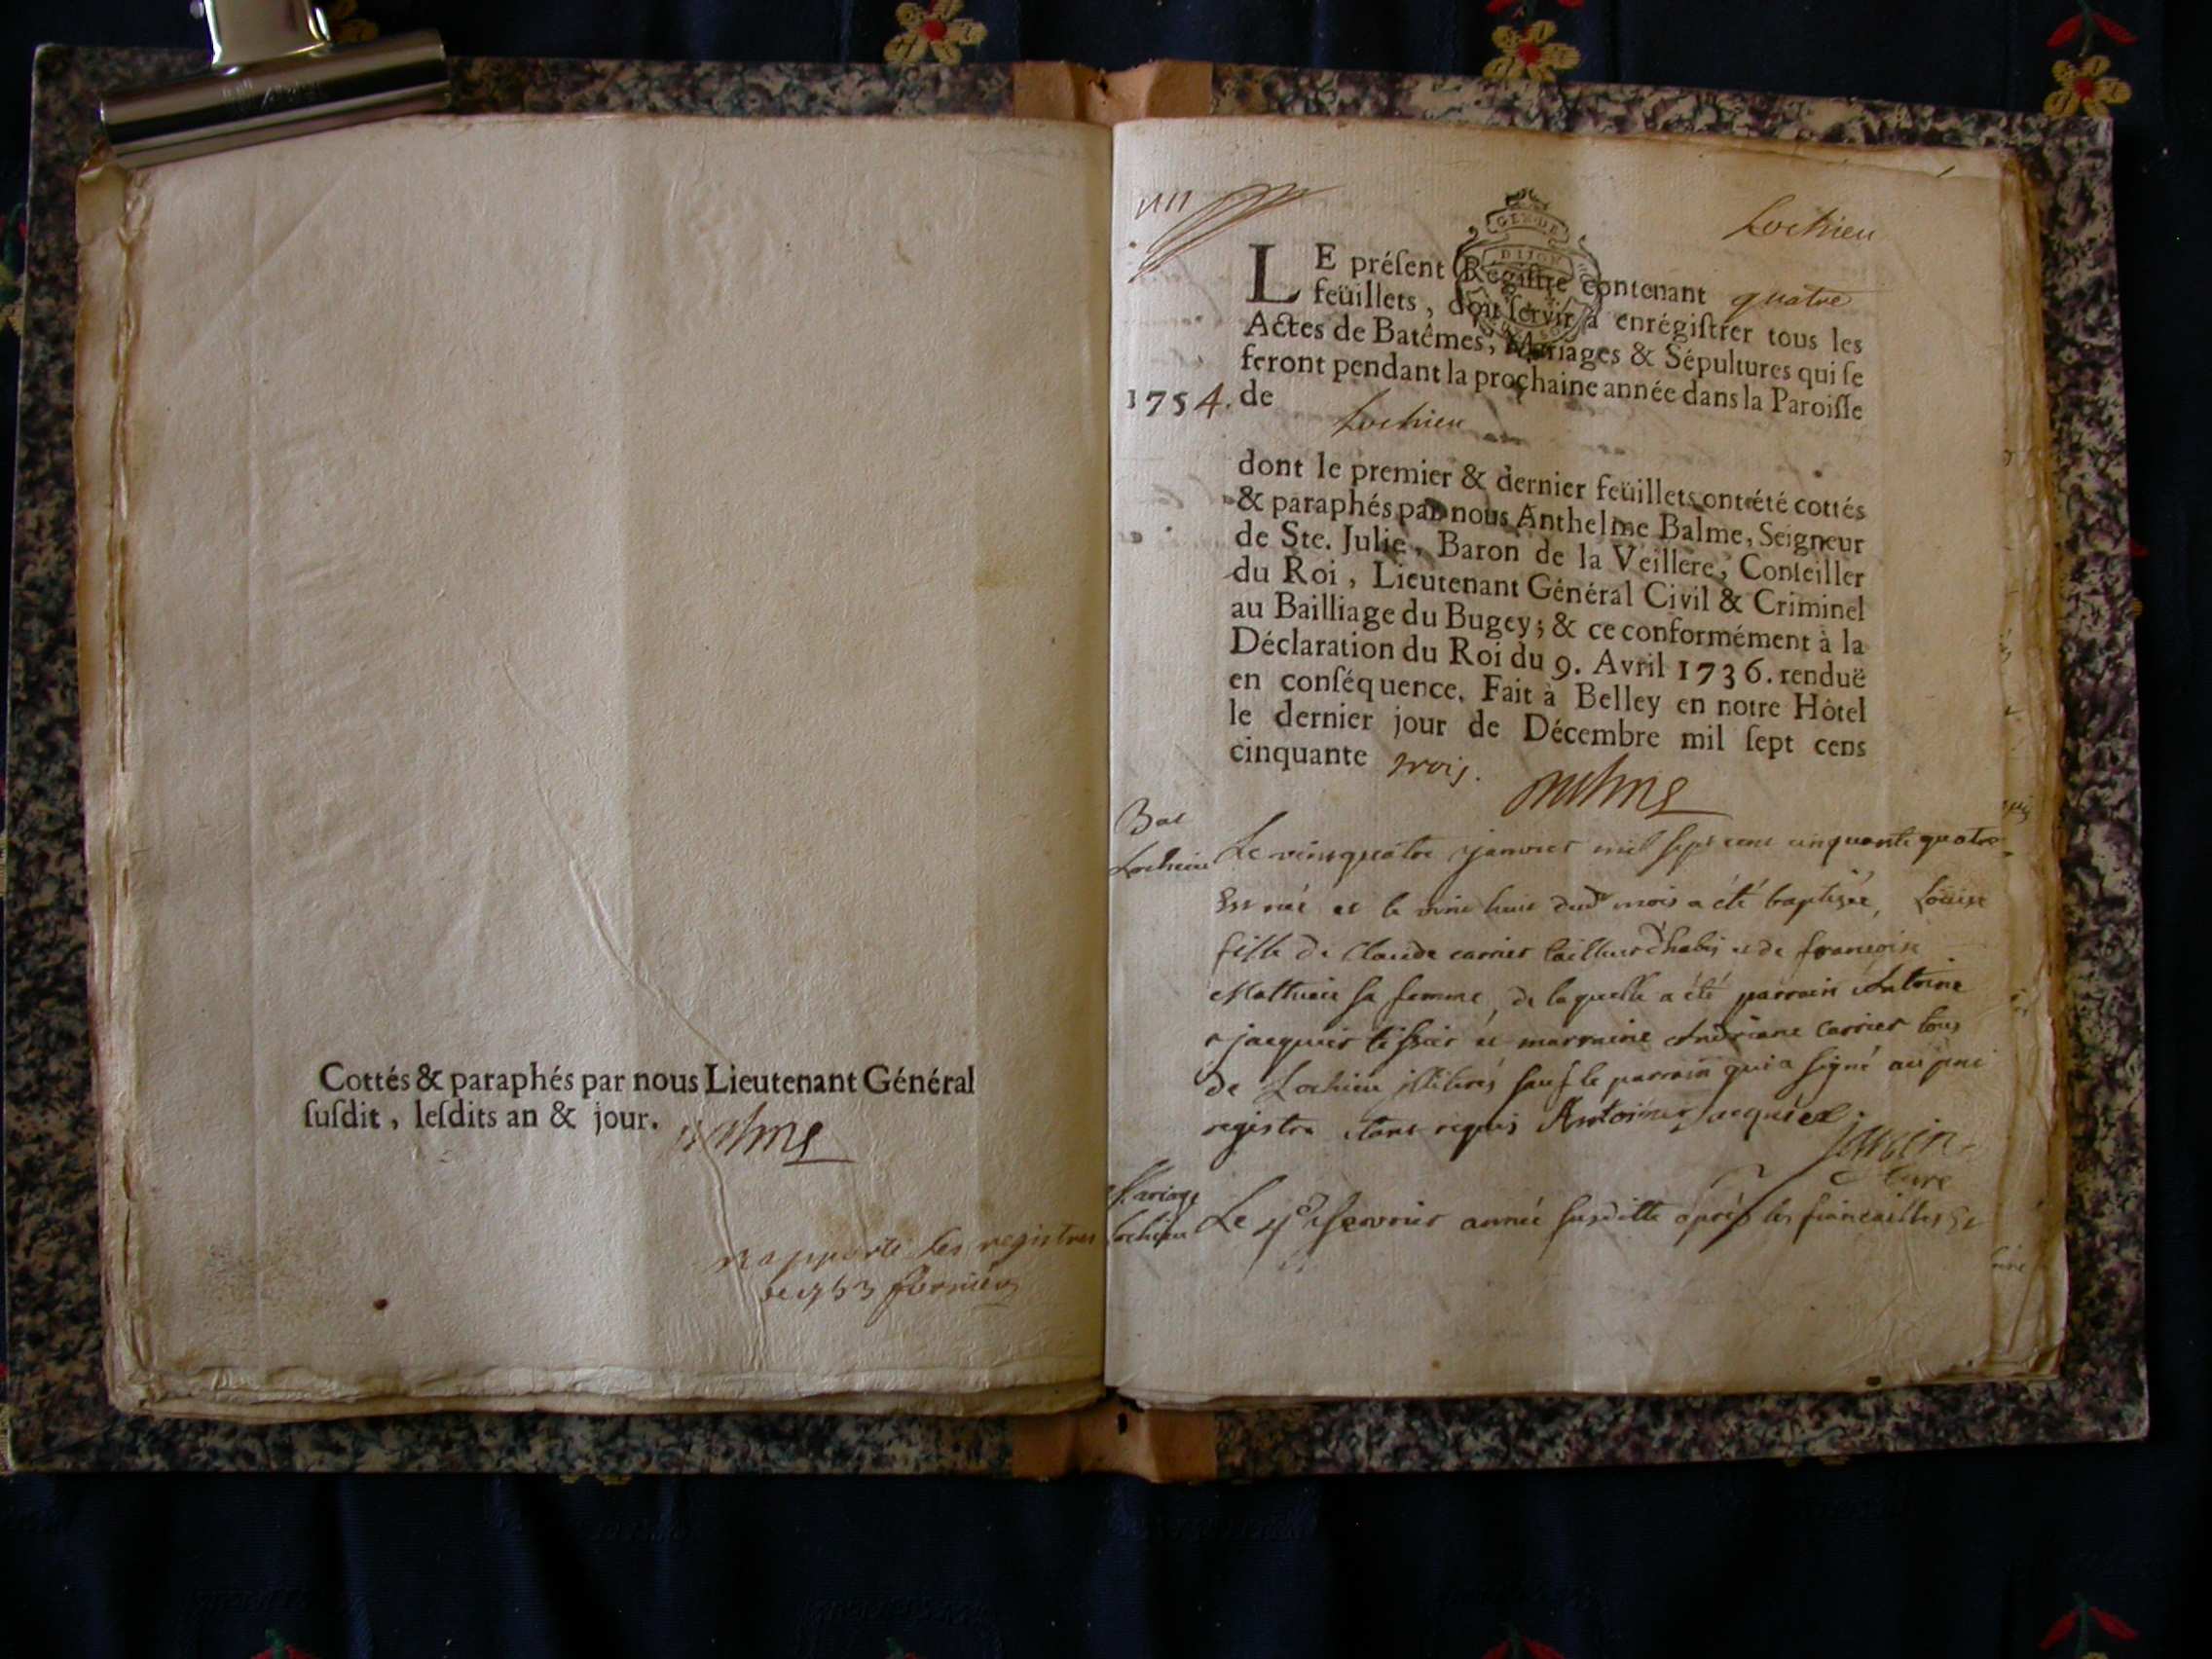 Cottés & paraphés par nous Lieutenant Général
ſuſdit, leſdits an & jour. Balme
Rapporté les registres
de 1753
Lochieu
GEN. DE
DIJON
LE préſent Regiſtre contenant quatre
feüillets, doit ſervir à enrégiſtrer tous les
Actes de Batêmes, Mariages & Sépultures qui ſe
feront pendant la prochaine année dans la Paroiſſe
1754. de Lochieu
dont le premier & dernier feüillets ont été cottés
& paraphés par nous Anthelme Balme, Seigneur
de Ste. Julie, Baron de la Veillere, Conſeiller
du Roi, Lieutenant Général Civil & Criminel
au Bailliage du Bugey; & ce conformément à la
Déclaration du Roi du 9. Avril 1736. renduë
en conſéquence. Fait à Belley en notre Hôtel
le dernier jour de Décembre mil ſept cens
cinquante trois. Balme
Bat
Lochieu
Le vint quatre janvier mil sept cent cinquante quatre
Est née et le vint huit dud mois a été baptisée, Louise
fille de Claude carrier tailleur d'habis et de francoise
Mathieu sa femme, de laquelle a été parrain Antoine
jacquier tissier et marraine Andriane Carrier tous
de Lochieu illiterés sauf le parrain qui a signé au pnt
registre étant requis Antoine Jacquier
jancin
Curé
Mariage
Lochieu
Le 4e fevrier année susditte après les fiancailles Et